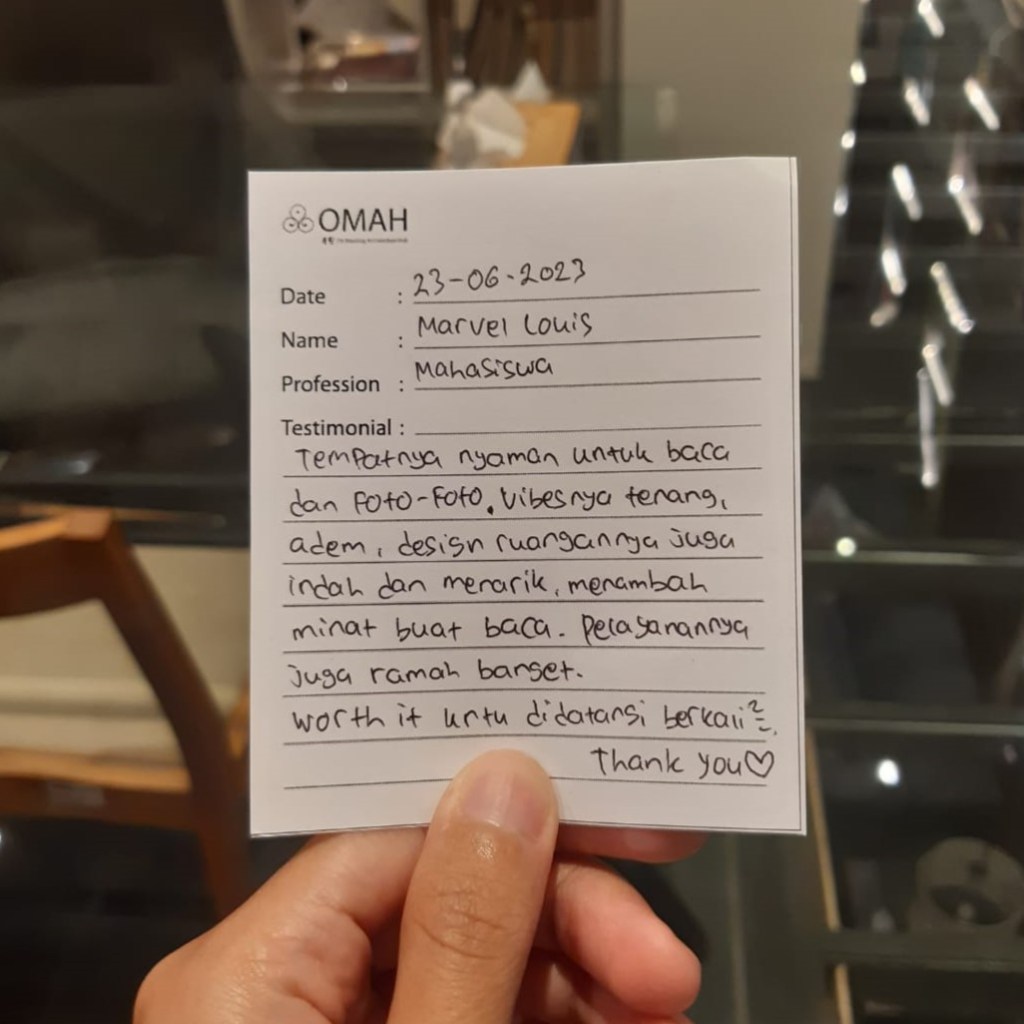 OMAH
Date : 23-06-2023
Name : Marvel Louis
Profession : Mahasiswa
Testimonial :
Tempatnya nyaman untuk baca
dan Foto-Foto. Vibesnya tenang,
adem, design ruangannya juga
indah dan menarik, menambah
minat buat baca. Pelayanannya
juga ramah banget.
worth it untu didatangi berkali²
Thank you♡